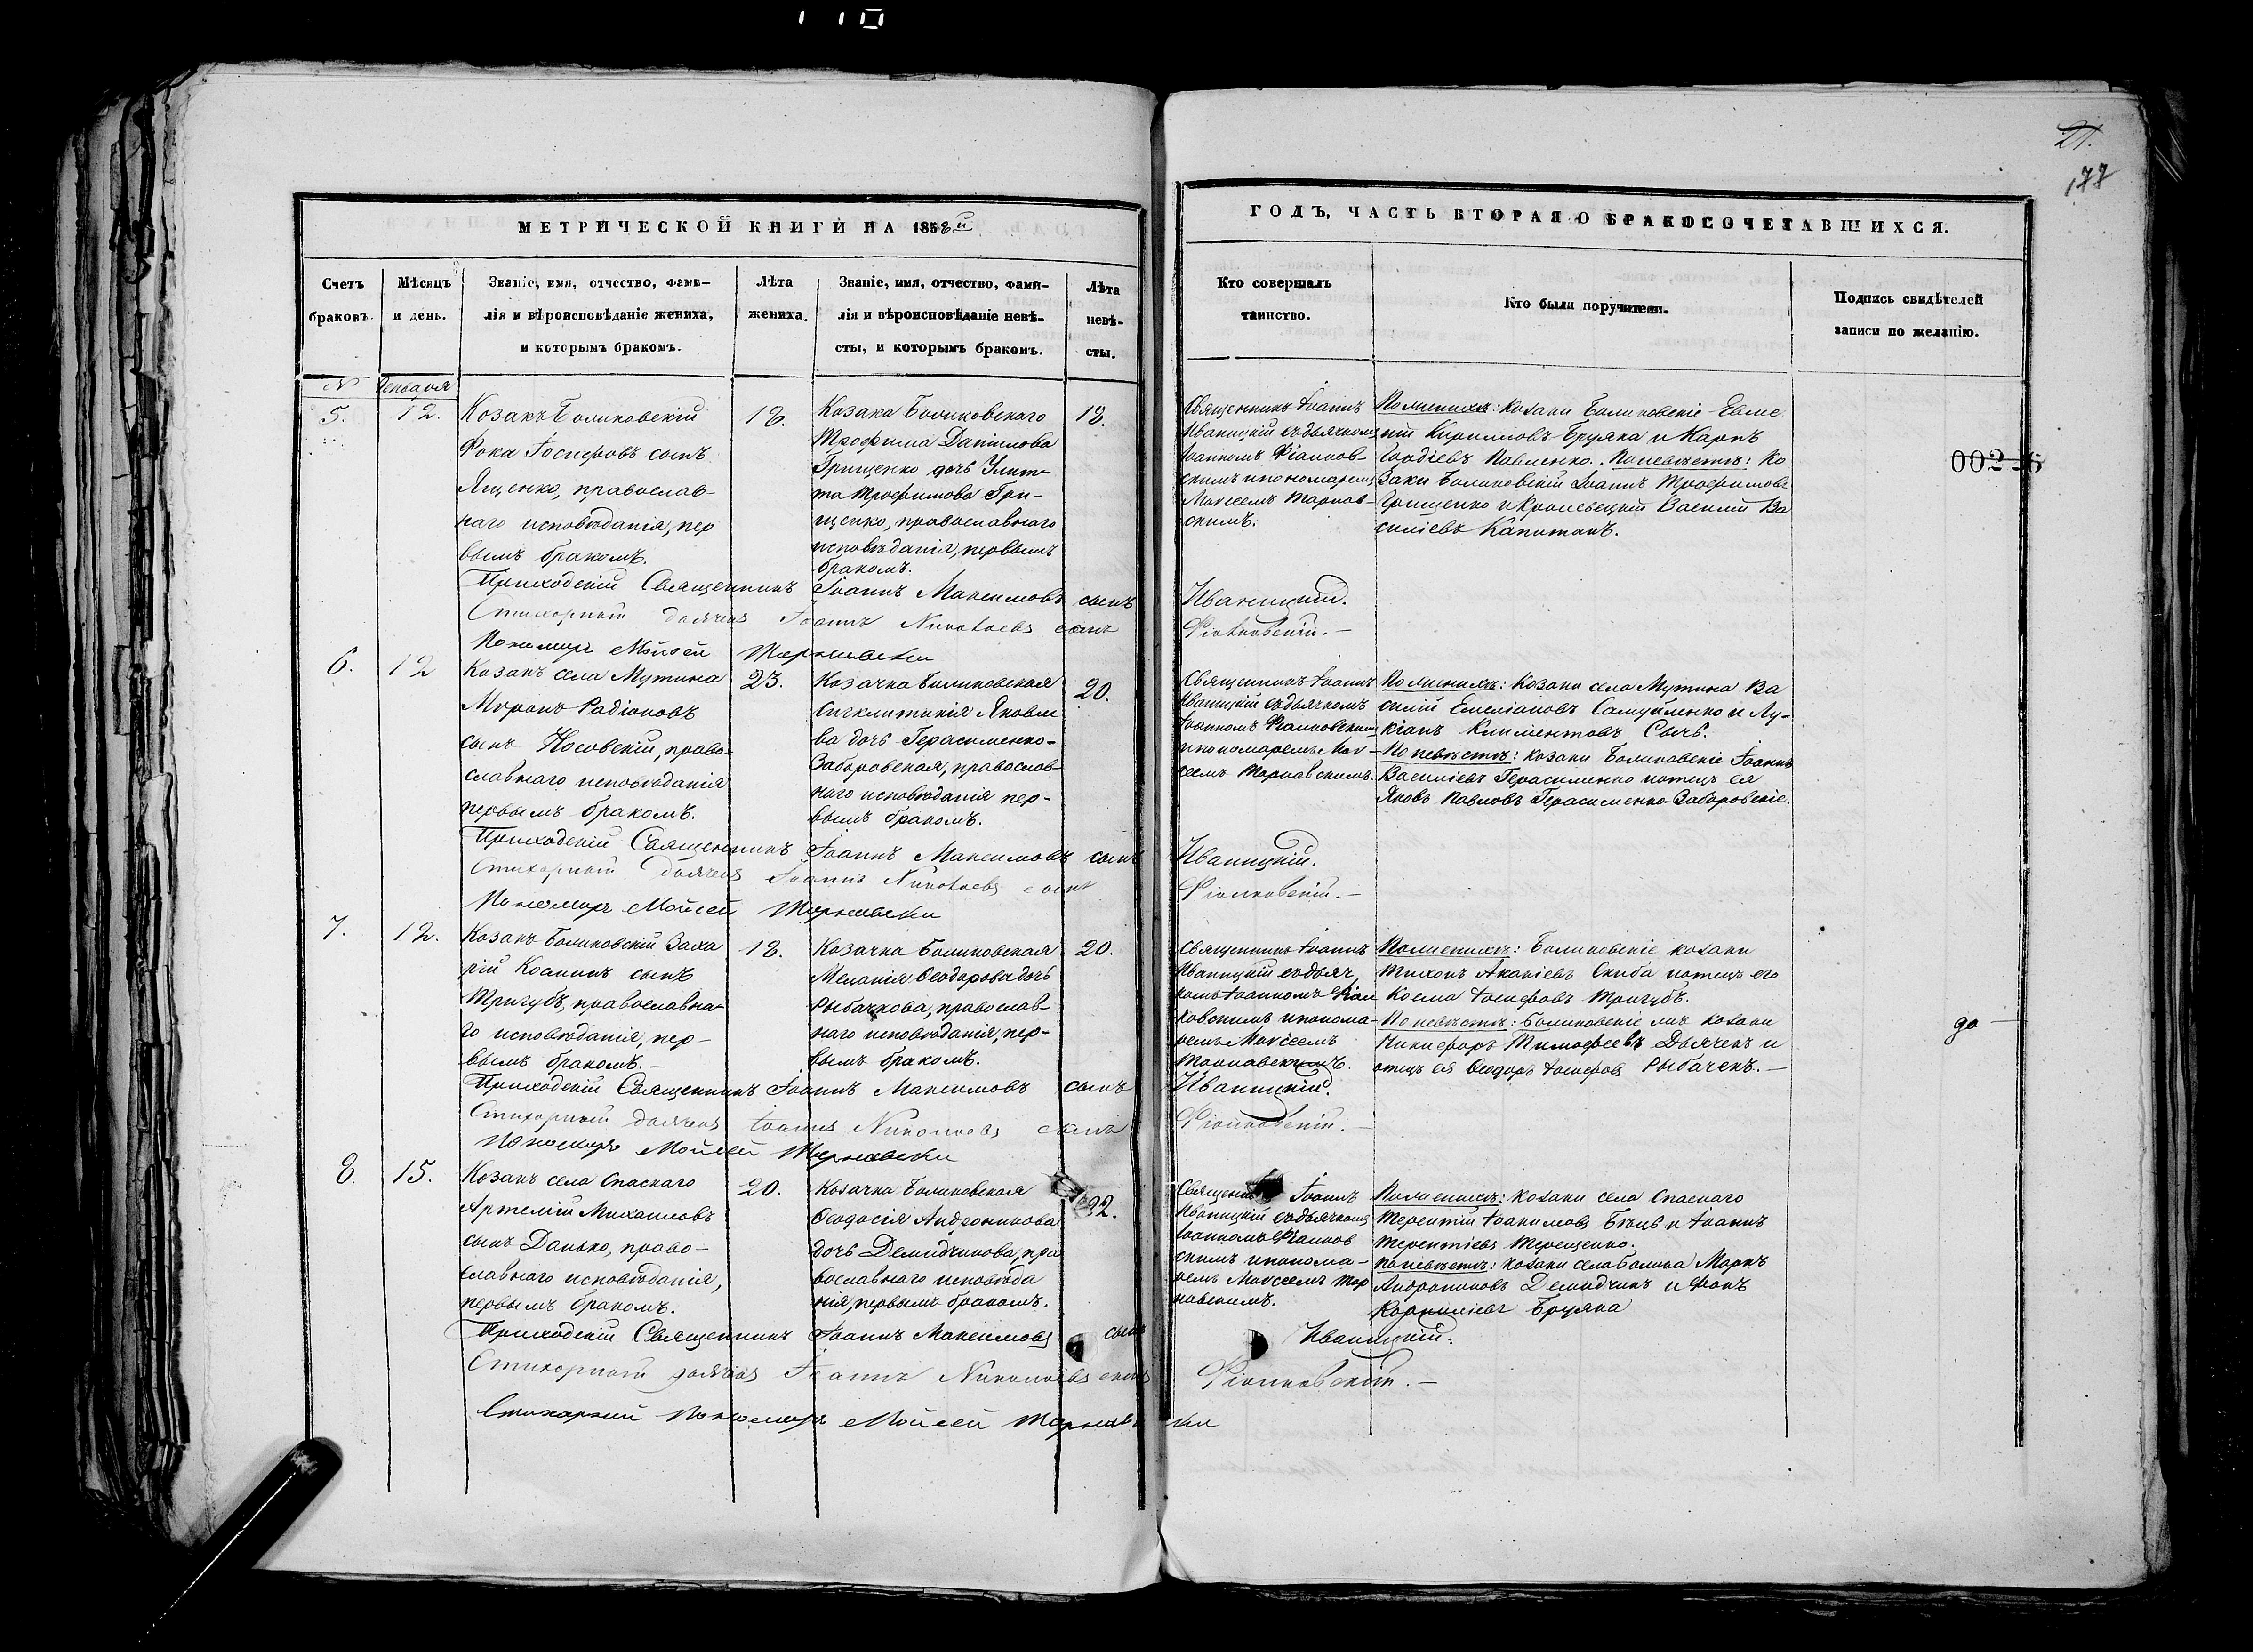 21.
177
МЕТРИЧЕСКОЙ КНИГИ НА 1858й
ГОДЪ, ЧАСТЬ ВТОРАЯ О БРАКОСОЧЕТАВШИХСЯ.
Счетъ
браковъ.
Мѣсяцъ
и день.
Званіе, имя, отчество, фами-
лія и вѣроисповѣданіе жениха,
и которымъ бракомъ.
Лѣта
жениха.
Званіе, имя, отчество, фами-
лія и вѣроисповѣданіе невѣ-
сты, и которымъ бракомъ.
Лѣта
невѣ-
сты.
Кто совершалъ
таинство.
Кто были поручители.
Подпись свидѣтелей
записи по желанію.
№
Генваря
5.
12.
Козакъ
Фока Іосифовъ сынъ
Ященко, православ-
наго исповѣданія, пер
вымъ бракомъ.
18.
Козака
Трофима Данилова
Грищенко дочь Улит-
та Трофимова Гри-
щенко, православнаго
исповѣданія, первымъ
бракомъ.
18.
Священникъ Іоаннъ
Иваницкій съ дьячкомъ
Іоанномъ Фіалков-
скимъ и пономаремъ
Моисеемъ Тарнав-
скимъ.
По женихѣ: козаки
Кирилловъ Бруяка и Карпъ
Павленко. По невѣстѣ: ко
заки Іоаннъ Трофимовъ
Грищенко и Кролевецкій Василій Ва
силіевъ Капитанъ.
002 6
Приходскій Священникъ Іоаннъ Максимовъ сынъ Иваницкій.
Стихарный дьячекъ Іоаннъ Николаевъ сынъ Фіалковскій.-
Пономаръ Мойсей Тарнавски
6.
12
Козакъ села Мутина
Миронъ Радіоновъ
сынъ Носовскій, право-
славнаго исповѣданія
первымъ бракомъ.
23.
Козачка
Сигклитикія Яковле
ва дочь Герасименко-
Забаровская, православ
наго исповѣданія пер-
вымъ бракомъ.
20.
Священникъ Іоаннъ
Иваницкій съ дьячкомъ
Іоанномъ Фіалковскимъ
и пономаремъ Мои-
сеемъ Тарнавскимъ.
По женихѣ: козаки села Мутина Ва
силій Емеліановъ Самуйленко и Лу-
кіанъ Климентовъ Сычъ.
По невѣстѣ: козаки Іоаннъ
Василіевъ Герасименко и отецъ ея
Яковъ Павловъ Герасименко-Забаровскіе.
Приходскій Священникъ Іоаннъ Максимовъ сынъ Иваницкій.
Стихарный дьячекъ Іоаннъ Николаевъ сынъ Фіалковскій.-
Пономаръ Мойсей Тарнавски
7.
12.
Козакъ Заха
рій Косминъ сынъ
Тригубъ, православна-
го исповѣданія, пер-
вымъ бракомъ.-
18.
Козачка
Меланія Ѳеодорова дочь
Рыбачкова, православ-
наго исповѣданія, пер-
вымъ бракомъ.
20.
Священникъ Іоаннъ
Иваницкій съ дьяч
комъ Іоанномъ Фіал
ковскимъ и понома-
ремъ Моисеемъ
Тарнавскимъ.
По женихѣ: козаки
Тихонъ Акакіевъ Скиба и отецъ его
Косма Іосифовъ Тригубъ.
По невѣстѣ: козаки
Никифоръ Тимофеевъ Дьяченъ и
отецъ ея Ѳеодоръ Іосифовъ Рыбаченъ.-
до -
Приходскій Священникъ Іоаннъ Максимовъ сынъ Иваницкій.
Стихарный дьячекъ Іоаннъ Николаевъ сынъ Фіалковскій.-
Пономаръ Мойсей Тарнавски
8.
15.
Козакъ села Спаскаго
Артемій Михаиловъ
сынъ Данько, право-
славнаго исповѣданія,
первымъ бракомъ.
20.
Козачка
Ѳеодосія Андроникова
дочь Демидчикова, пра
вославнаго исповѣда
нія, первымъ бракомъ.
22.
Іоаннъ
Иваницкій съ дьячкомъ
Іоанномъ Фіалков
скимъ и понома-
ремъ Моисеемъ Тар
навскимъ.
По женихѣ: козаки села Спаскаго
Терентій Іоакимовъ и Іоаннъ
Терентіевъ Терещенко.
По невѣстѣ: козаки села Маркъ
Андрониковъ Демидчикъ и Фока
Корниліевъ Бруяка
Приходскій Священникъ Іоаннъ Максимовъ сынъ Иваницкій.
Стихарный дьячекъ Іоаннъ Николаевъ сынъ Фіалковскій.-
Стихарний Пономаръ Мойсей Тарнавски